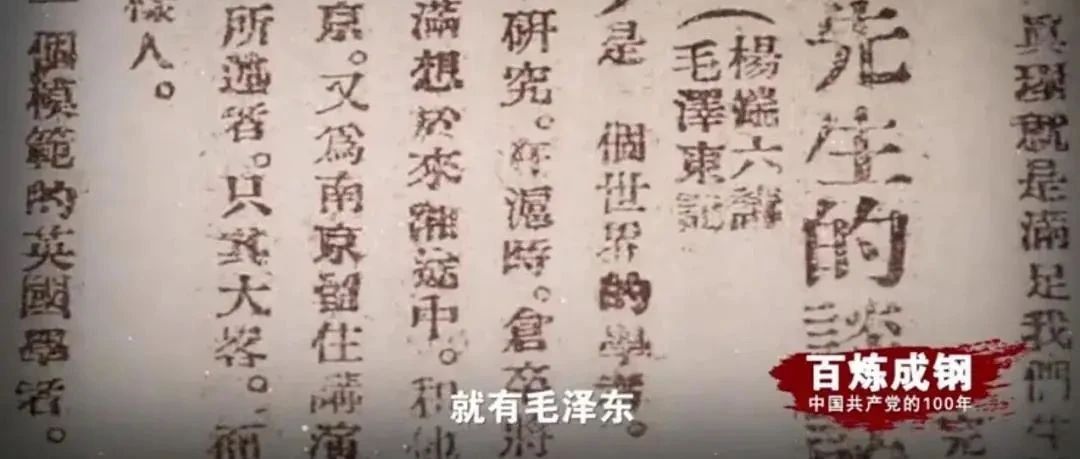 真理就是滿足我們生
完
先生的談
(楊端六講
毛澤東記
是 個世界的學者。
研究。在滬時。倉卒將
滿想於來湘途中。和他
京。又爲南京留住講演
所述者。只其大畧。
樣人。
一個模範的英國學者。
就有毛泽东
百炼成钢
中国共产党的100年